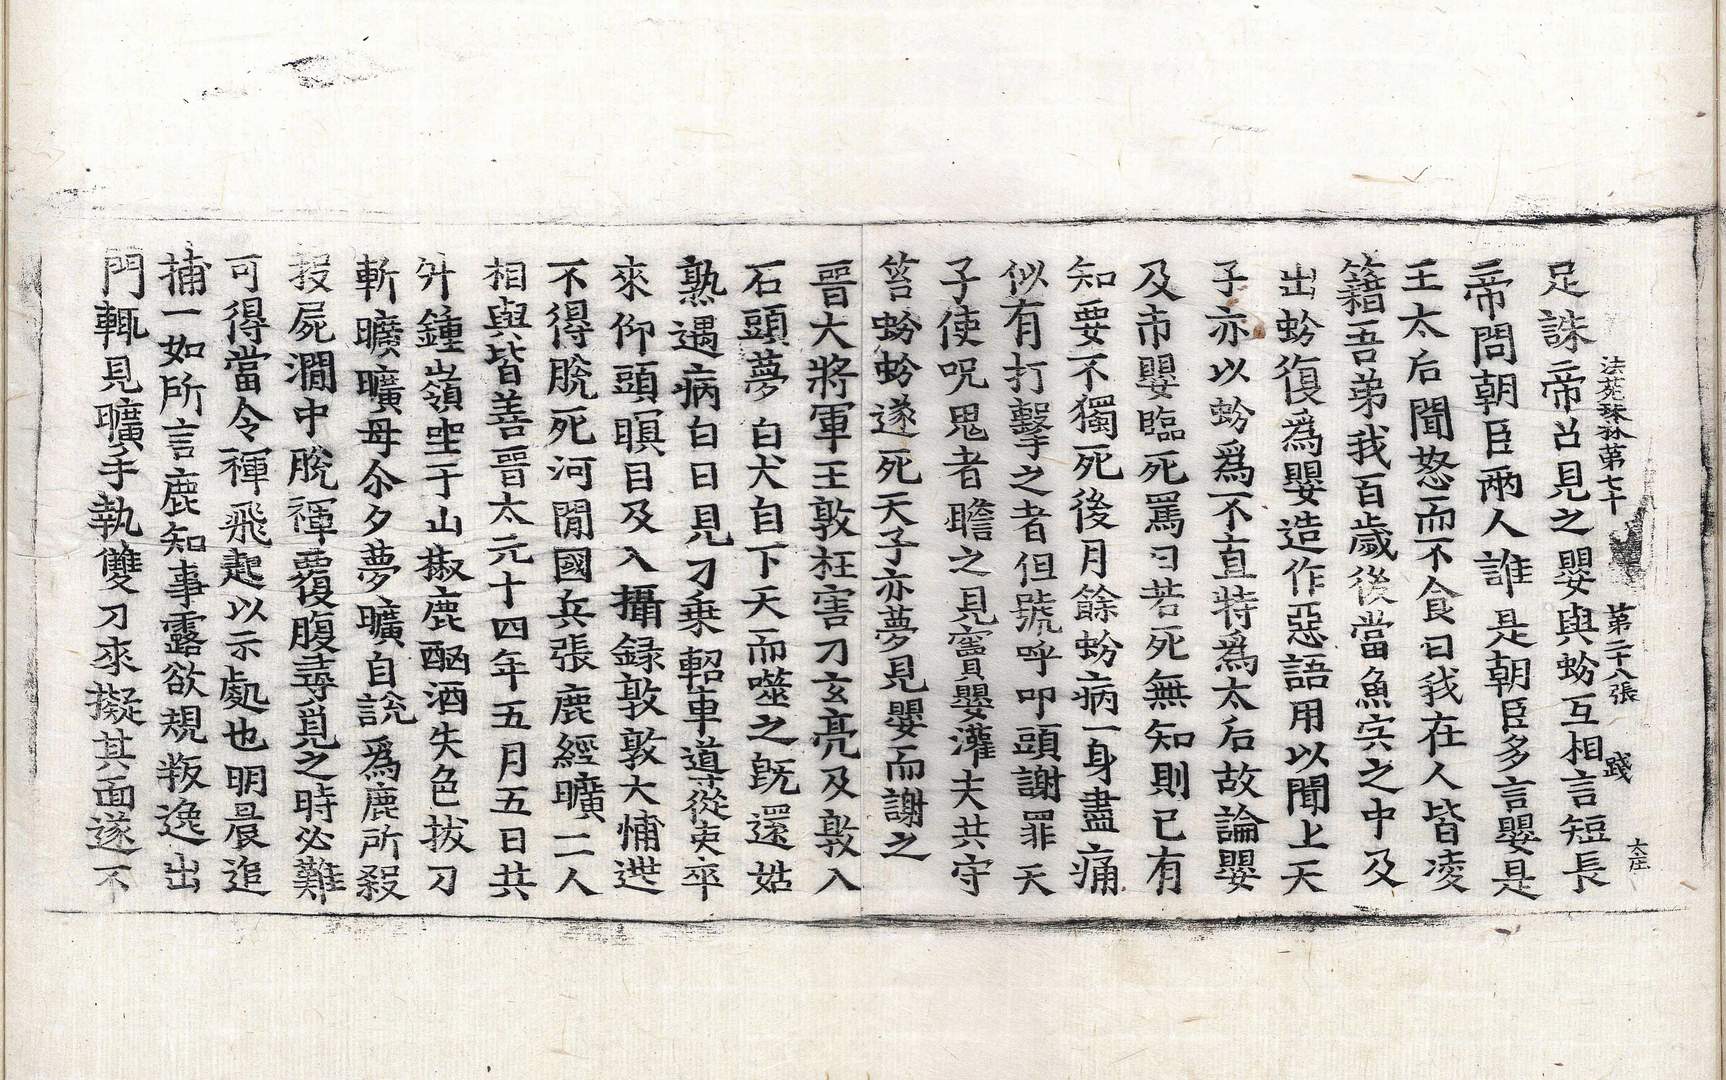 法苑珠林第七十 第二十八張 踐 大庄
足誅帝召見之嬰與蚡互相言短長
帝問朝臣兩人誰是朝臣多言嬰是
王太后聞怒而不食曰我在人皆凌
籍吾弟我百歲後當魚宍之中及
出蚡復爲嬰造作惡語用以聞上天
子亦以蚡爲不直特爲太后故論嬰
及市嬰臨死罵曰若死無知則已有
知要不獨死後月餘蚡病一身盡痛
似有打擊之者但號呼叩頭謝罪天
子使呪鬼者瞻之見竇嬰灌夫共守
笞蚡蚡遂死天子亦夢見嬰而謝之
晉大將軍王敦枉害刁玄亮及敦入
石頭夢白犬自下天而噬之旣還姑
熟遇病白日見刁乗軺車道從吏卒
來仰頭瞋目及入攝録敦敦大怖迯
不得脫死河閒國兵張鹿經曠二人
相與皆善晉太元十四年五月五日共
升鍾嶺坐于山椒鹿酗酒失色拔刀
斬曠曠母尒夕夢曠自説爲鹿所殺
投屍澗中脫褌覆腹尋覓之時必難
可得當令褌飛起以示處也明晨追
捕一如所言鹿知事露欲規叛逸出
門輒見曠手執雙刀來擬其面遂不